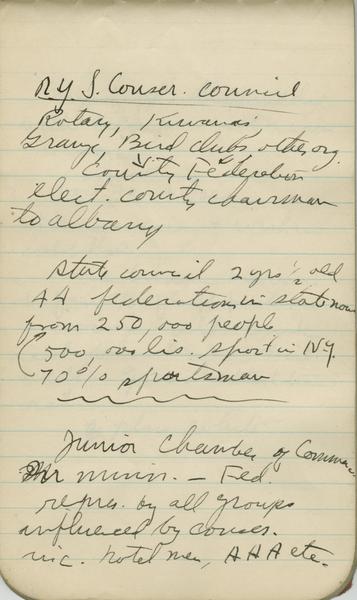 N.Y.S. Conser. Council
Rotary, Kiwanas
Grange, Bird clubs, other org.
County Federation
elect. county chairman
to albany
State council 2 yrs 1/2 old
44 federations in state now
from 250,000 people
(500,000 lis. sport in N.Y.
70% sportsman
Junior Chamber of Commerce
Mr — Fed.
repres. by all groups
influenced by conser.
inc. hotel men, AAA etc.